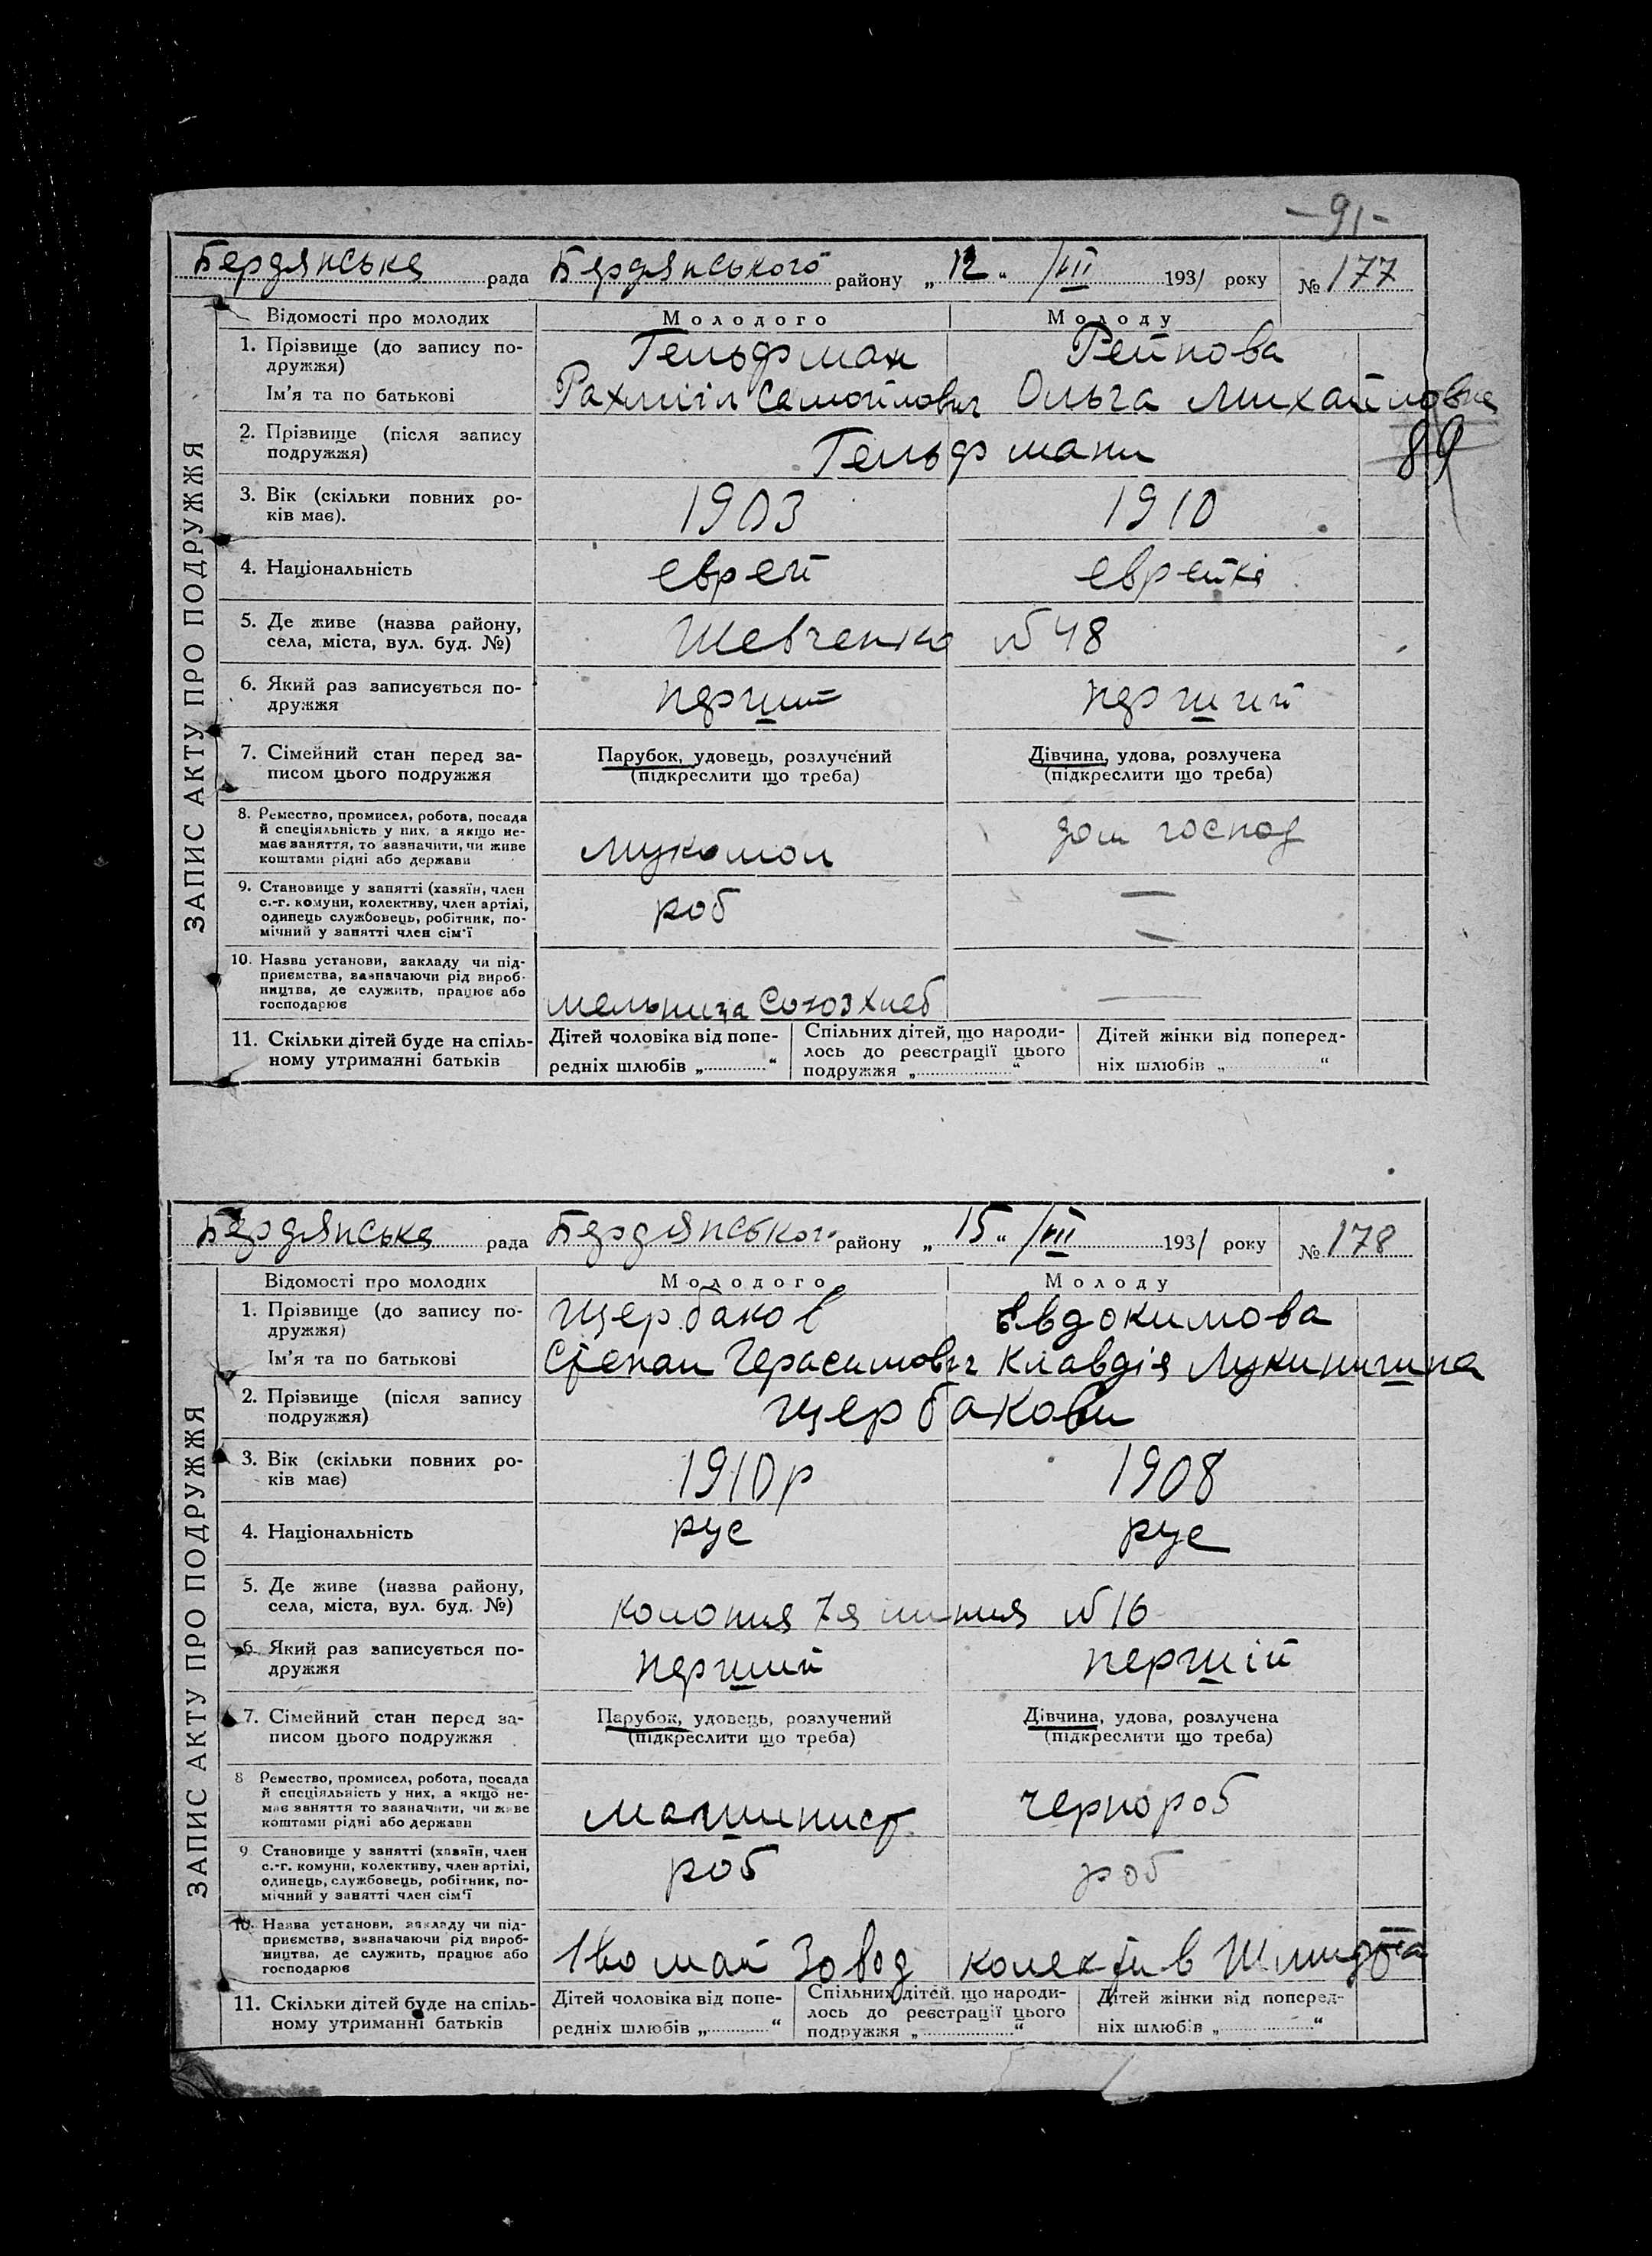 -91-
Бердянська рада Бердянського району „12“ /VIII 1931 року № 177
Відомості про молодих Молодого Молоду
1. Прізвище (до запису по-
дружжя) Гельфман Рейнова
Ім'я та по батькові Рахміїл Самойлович Ольга Михайловна
2. Прізвище (після запису
подружжя) Гельфмани
89
3. Вік (скільки повних ро-
ків має). 1903 1910
4. Національність еврей еврейка
5. Де живе (назва району,
села, міста, вул. буд. №) Шевченко №48
6. Який раз записується по-
дружжя перший перший
7. Сімейний стан перед за-
писом цього подружжя
Парубок, удовець, розлучений
(підкреслити що треба)
Дівчина, удова, розлучена
(підкреслити що треба)
8. Ремество, промисел, робота, посада
й спеціяльність у них, а якщо не-
має заняття, то зазначити, чи живе
коштами рідні або держави
мукомол дом господ
9. Становище у занятті (хазяїн, член
с.-г. комуни, колективу, член артілі,
одинець службовець, робітник, по-
мічний у занятті член сім'ї
роб —
10. Назва установи, закладу чи під-
приємства, зазначаючи рід вироб-
ництва, де служить, працює або
господарює
мельница Союзхлеб —
11. Скільки дітей буде на спіль-
ному утриманні батьків
Дітей чоловіка від попе-
редніх шлюбів „ “
Спільних дітей, що народи-
лось до реєстрації цього
подружжя „ “
Дітей жінки від поперед-
ніх шлюбів „ “
ЗАПИС АКТУ ПРО ПОДРУЖЖЯ
Бердянська рада Бердянського району „15“ /VIII 1931 року № 178
Відомості про молодих Молодого Молоду
1. Прізвище (до запису по-
дружжя) Щербаков Евдокимова
Ім'я та по батькові Степан Герасимович Клавдія Лукинишна
2. Прізвище (після запису
подружжя) Щербакови
3. Вік (скільки повних ро-
ків має) 1910р 1908
4. Національність рус рус
5. Де живе (назва району,
села, міста, вул. буд. №) колония 7я линия №16
6. Який раз записується по-
дружжя перший першій
7. Сімейний стан перед за-
писом цього подружжя
Парубок, удовець, розлучений
(підкреслити що треба)
Дівчина, удова, розлучена
(підкреслити що треба)
8 Ремество, промисел, робота, посада
й спеціяльність у них, а якщо не-
має заняття то зазначити, чи живе
коштами рідні або держави
машинист чернороб
9. Становище у занятті (хазяїн, член
с.-г. комуни, колективу, член артілі,
одинець, службовець, робітник, по-
мічний у занятті член сім'ї
роб роб
10. Назва установи, закладу чи під-
приємства, зазначаючи рід вироб-
ництва, де служить, працює або
господарює
1го май Завод колектив Шмидта
11. Скільки дітей буде на спіль-
ному утриманні батьків
Дітей чоловіка від попе-
редніх шлюбів „ “
Спільних дітей, що народи-
лось до реєстрації цього
подружжя „ “
Дітей жінки від поперед-
ніх шлюбів „ “
ЗАПИС АКТУ ПРО ПОДРУЖЖЯ